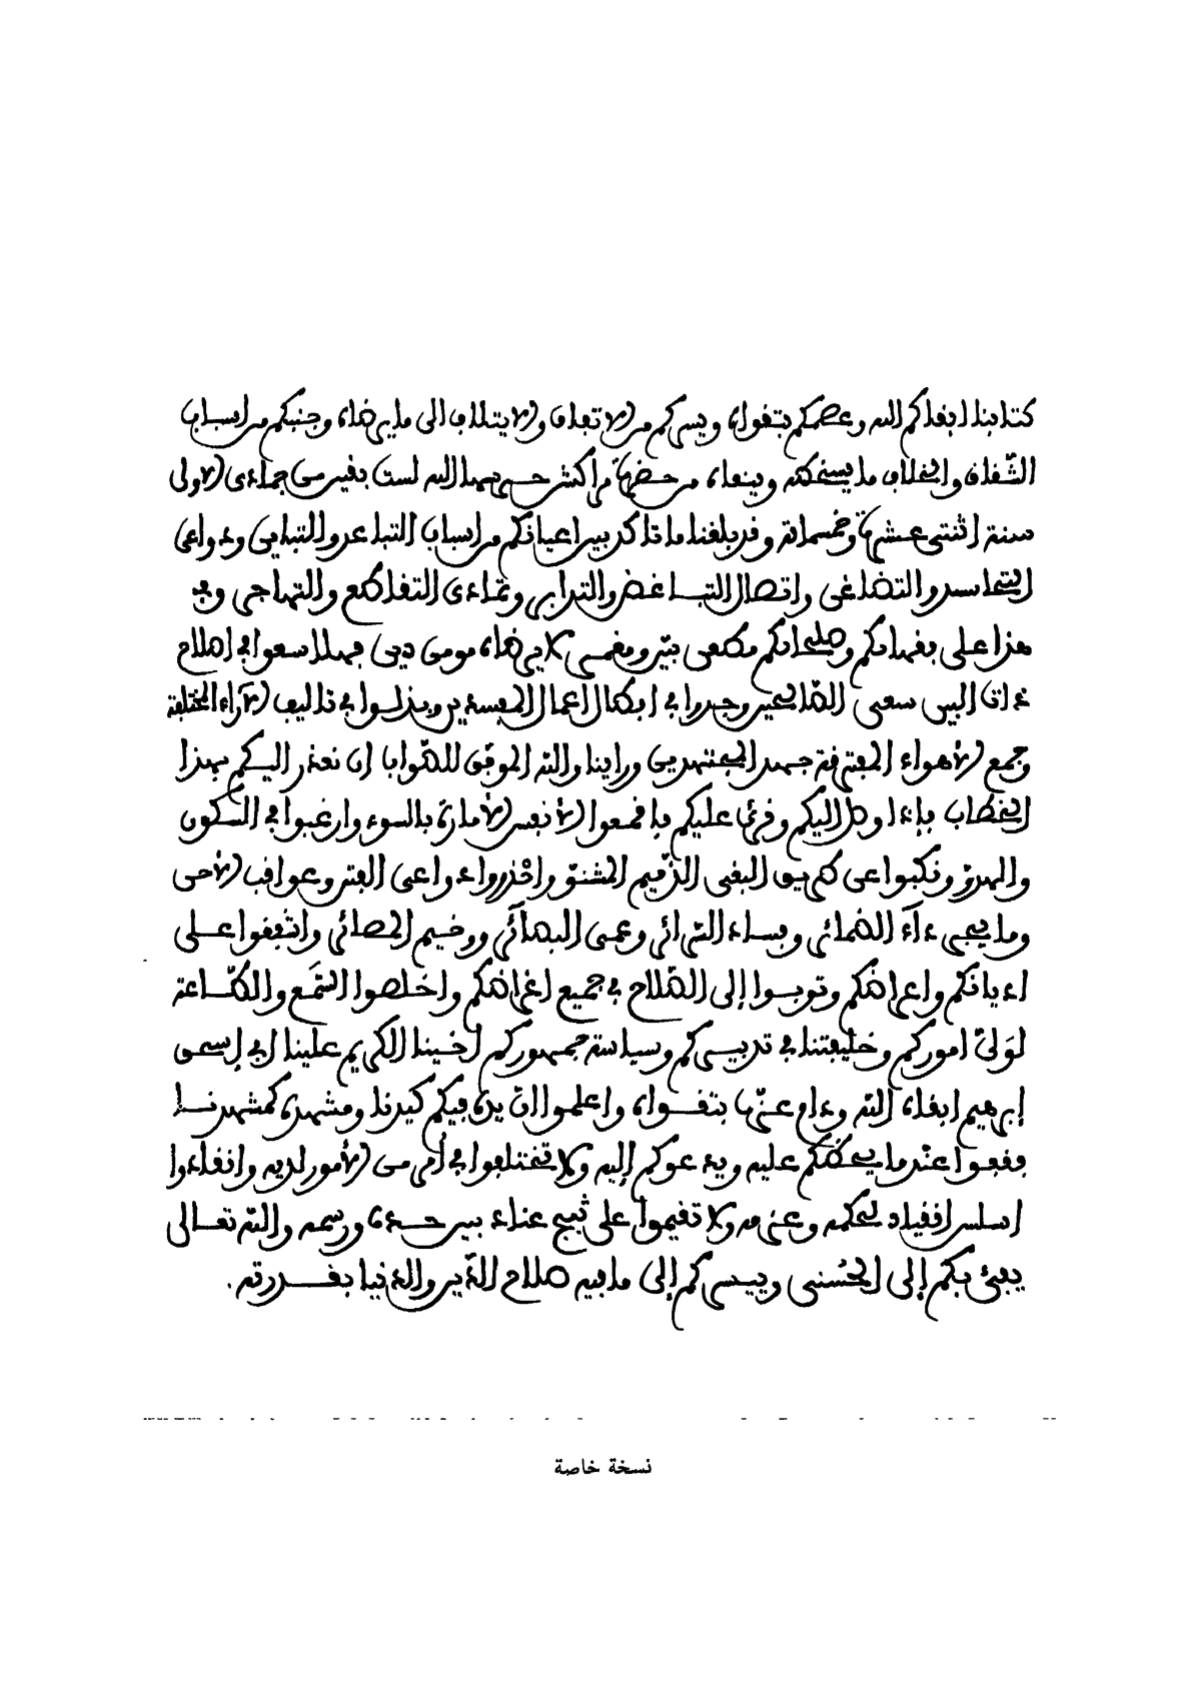 كتابنا ابقاكم الله وعصمكم بتقواه ويسركم من الاتفاق والايتلاف الى ما يرضاه وجنبكم من اسباب
الشقاق والخلاف ما يسخطه وينعاه من حضرة مراكش حرسها الله لست بقين من جمادى الاولى
سنة اثنتي عشرة وخمسمائة وقد بلغنا ما تاكد بين اعيانكم من اسباب التباعد والتباين ودواعي
التحاسد والتضاغن واتصال التباغض والتدابر وتمادى التقاطع والتهاجر وفي
هذا على فقهائكم وصلحائكم مطعن بين ومغمز لا يرضاه مومن دين فهلا سعوا في اصلاح
ذات البين سعي الصالحين وجدوا في ابطال اعمال المفسدين وبذلوا في تاليف الآراء المختلفة
وجمع الأهواء المفترقة جهد المجتهدين وراينا والله الموفق للصواب ان نعذر اليكم بهذا
الخطاب فإذا وصل اليكم وقرئ عليكم فاقمعوا الأنفس الأمارة بالسوء وارغبوا في السكون
والهدو ونكبوا عن طريق البغي الذميم المشنو واحذروا دواعي الفتن وعواقب الأحن
وما يجر دآء الضمائر وفساد السرائر وعمى البصآئر ووخيم المصائر واشفقوا على
اديانكم واعراضكم وتوبوا إلى الصلاح في جميع اغراضكم واخلصوا السمع والطاعة
لوالي اموركم وخليفتنا في تدبيركم وسياسة جمهوركم اخينا الكريم علينا ابي إسحق
إبرهيم ابقاه الله وادام عزه بتقواه واعلموا ان يده فيكم كيدنا ومشهده كمشهدنا
فقفوا عند ما يحضكم عليه ويدعوكم إليه ولا تختلفوا في أمر من الأمور لديه وانقادوا
اسلس انقياد لحكمه وعزمه ولا تقيموا على ثبج عناد بين حده ورسمه والله تعالى
يفئ بكم إلى الحسنى وييسركم إلى ما فيه صلاح الدين والدنيا بقدرته.
نسخة خاصة